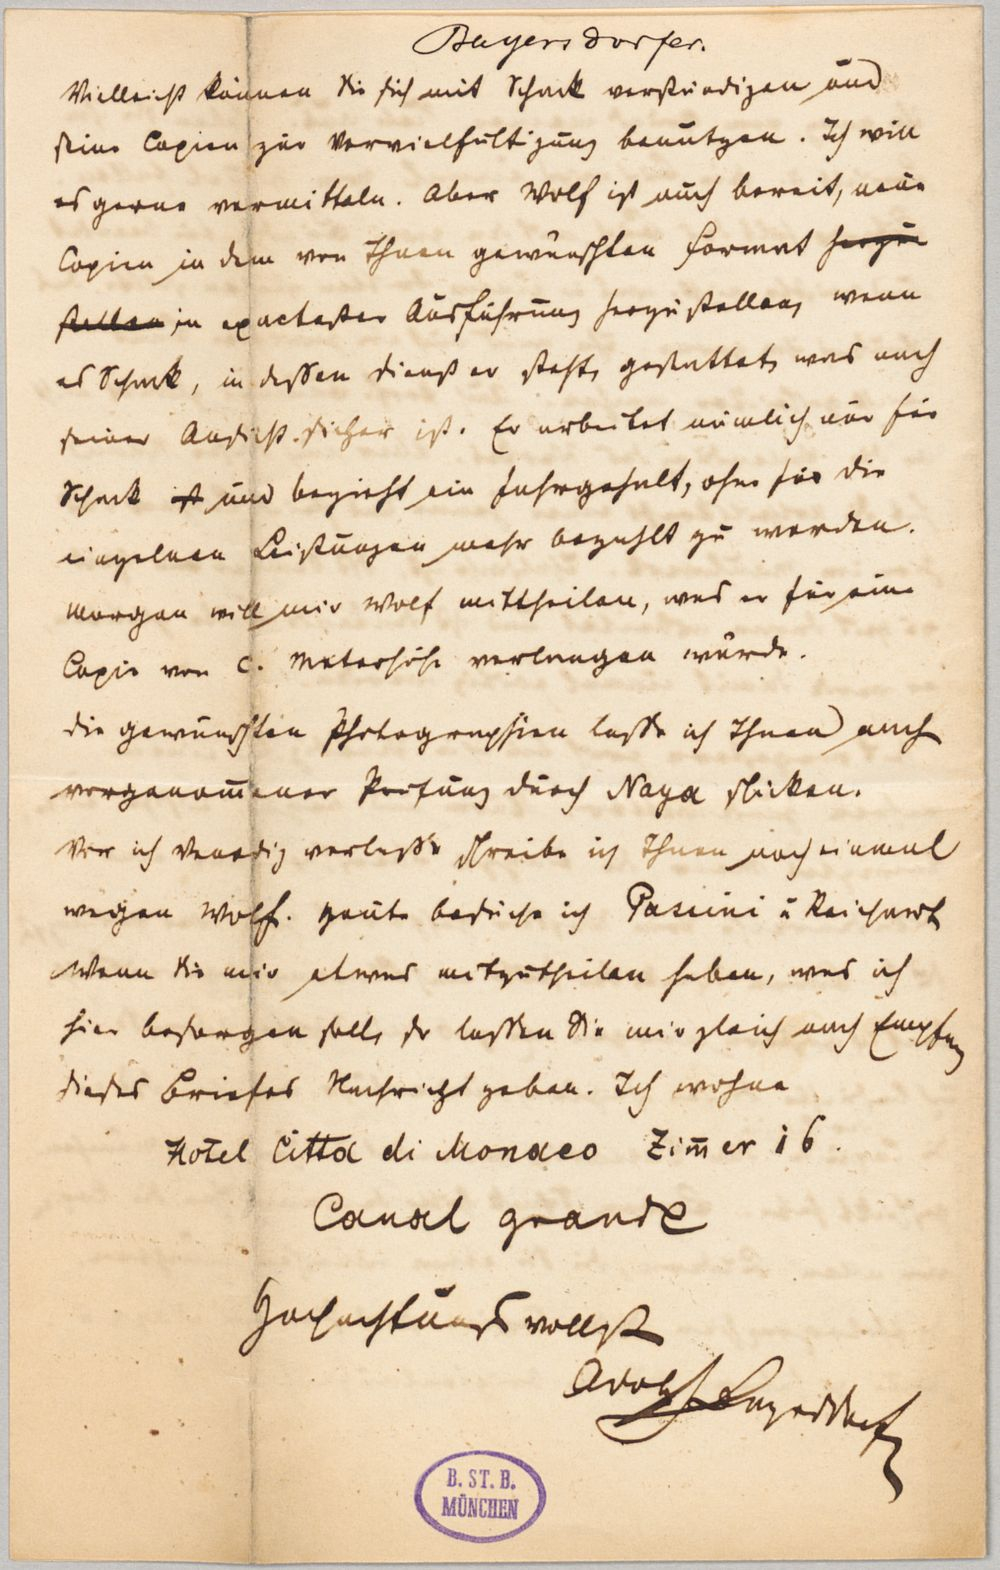 Bayersdorfer.
Vielleicht können Sie sich mit Schack verständigen und
seine Copien zur Vervielfältigung benutzen. Ich will
es gerne vermitteln. Aber Wolf ist auch bereit, neue
Copien in dem von Ihnen gewünschten Format herzu
stellen in exactester Ausführung herzustellen, wenn
es Schack, in dessen Dienst er steht, gestattet, was nach
seiner Ansicht sicher ist. Er arbeitet nämlich nur für
Schack ist und bezieht ein Jahrgehalt, ohne für die
einzelnen Leistungen mehr bezahlt zu werden.
Morgen will mir Wolf mittheilen, was er für eine
Copie von c. Meterhöhe verlangen würde.
Die gewünschten Photographien lasse ich Ihnen nach
vorgenom̄ener Prüfung durch Naya schicken.
Vor ich Venedig verlasse schreibe ich Ihnen noch einmal
wegen Wolf. Heute besuche ich Passini u Reichardt
Wenn Sie mir etwas mitzutheilen haben, was ich
hier besorgen soll, so lassen Sie mir gleich nach Empfang
dieses Briefes Nachricht geben. Ich wohne
Hotel Citta di Monaco Zim̄er 16.
Canal grande
Hochachtungsvollst
Adolf Bayersdorfer
B. ST. B.
MÜNCHEN